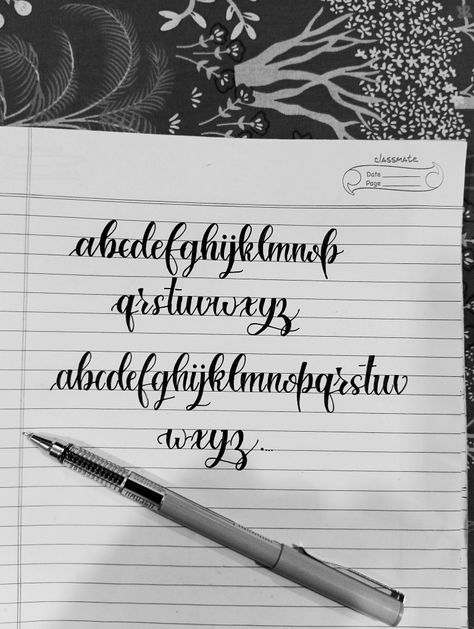 classmate
Date
Page
abcdefghijklmnop
qrstuvwxyz
abcdefghijklmnopqrstuv
wxyz....